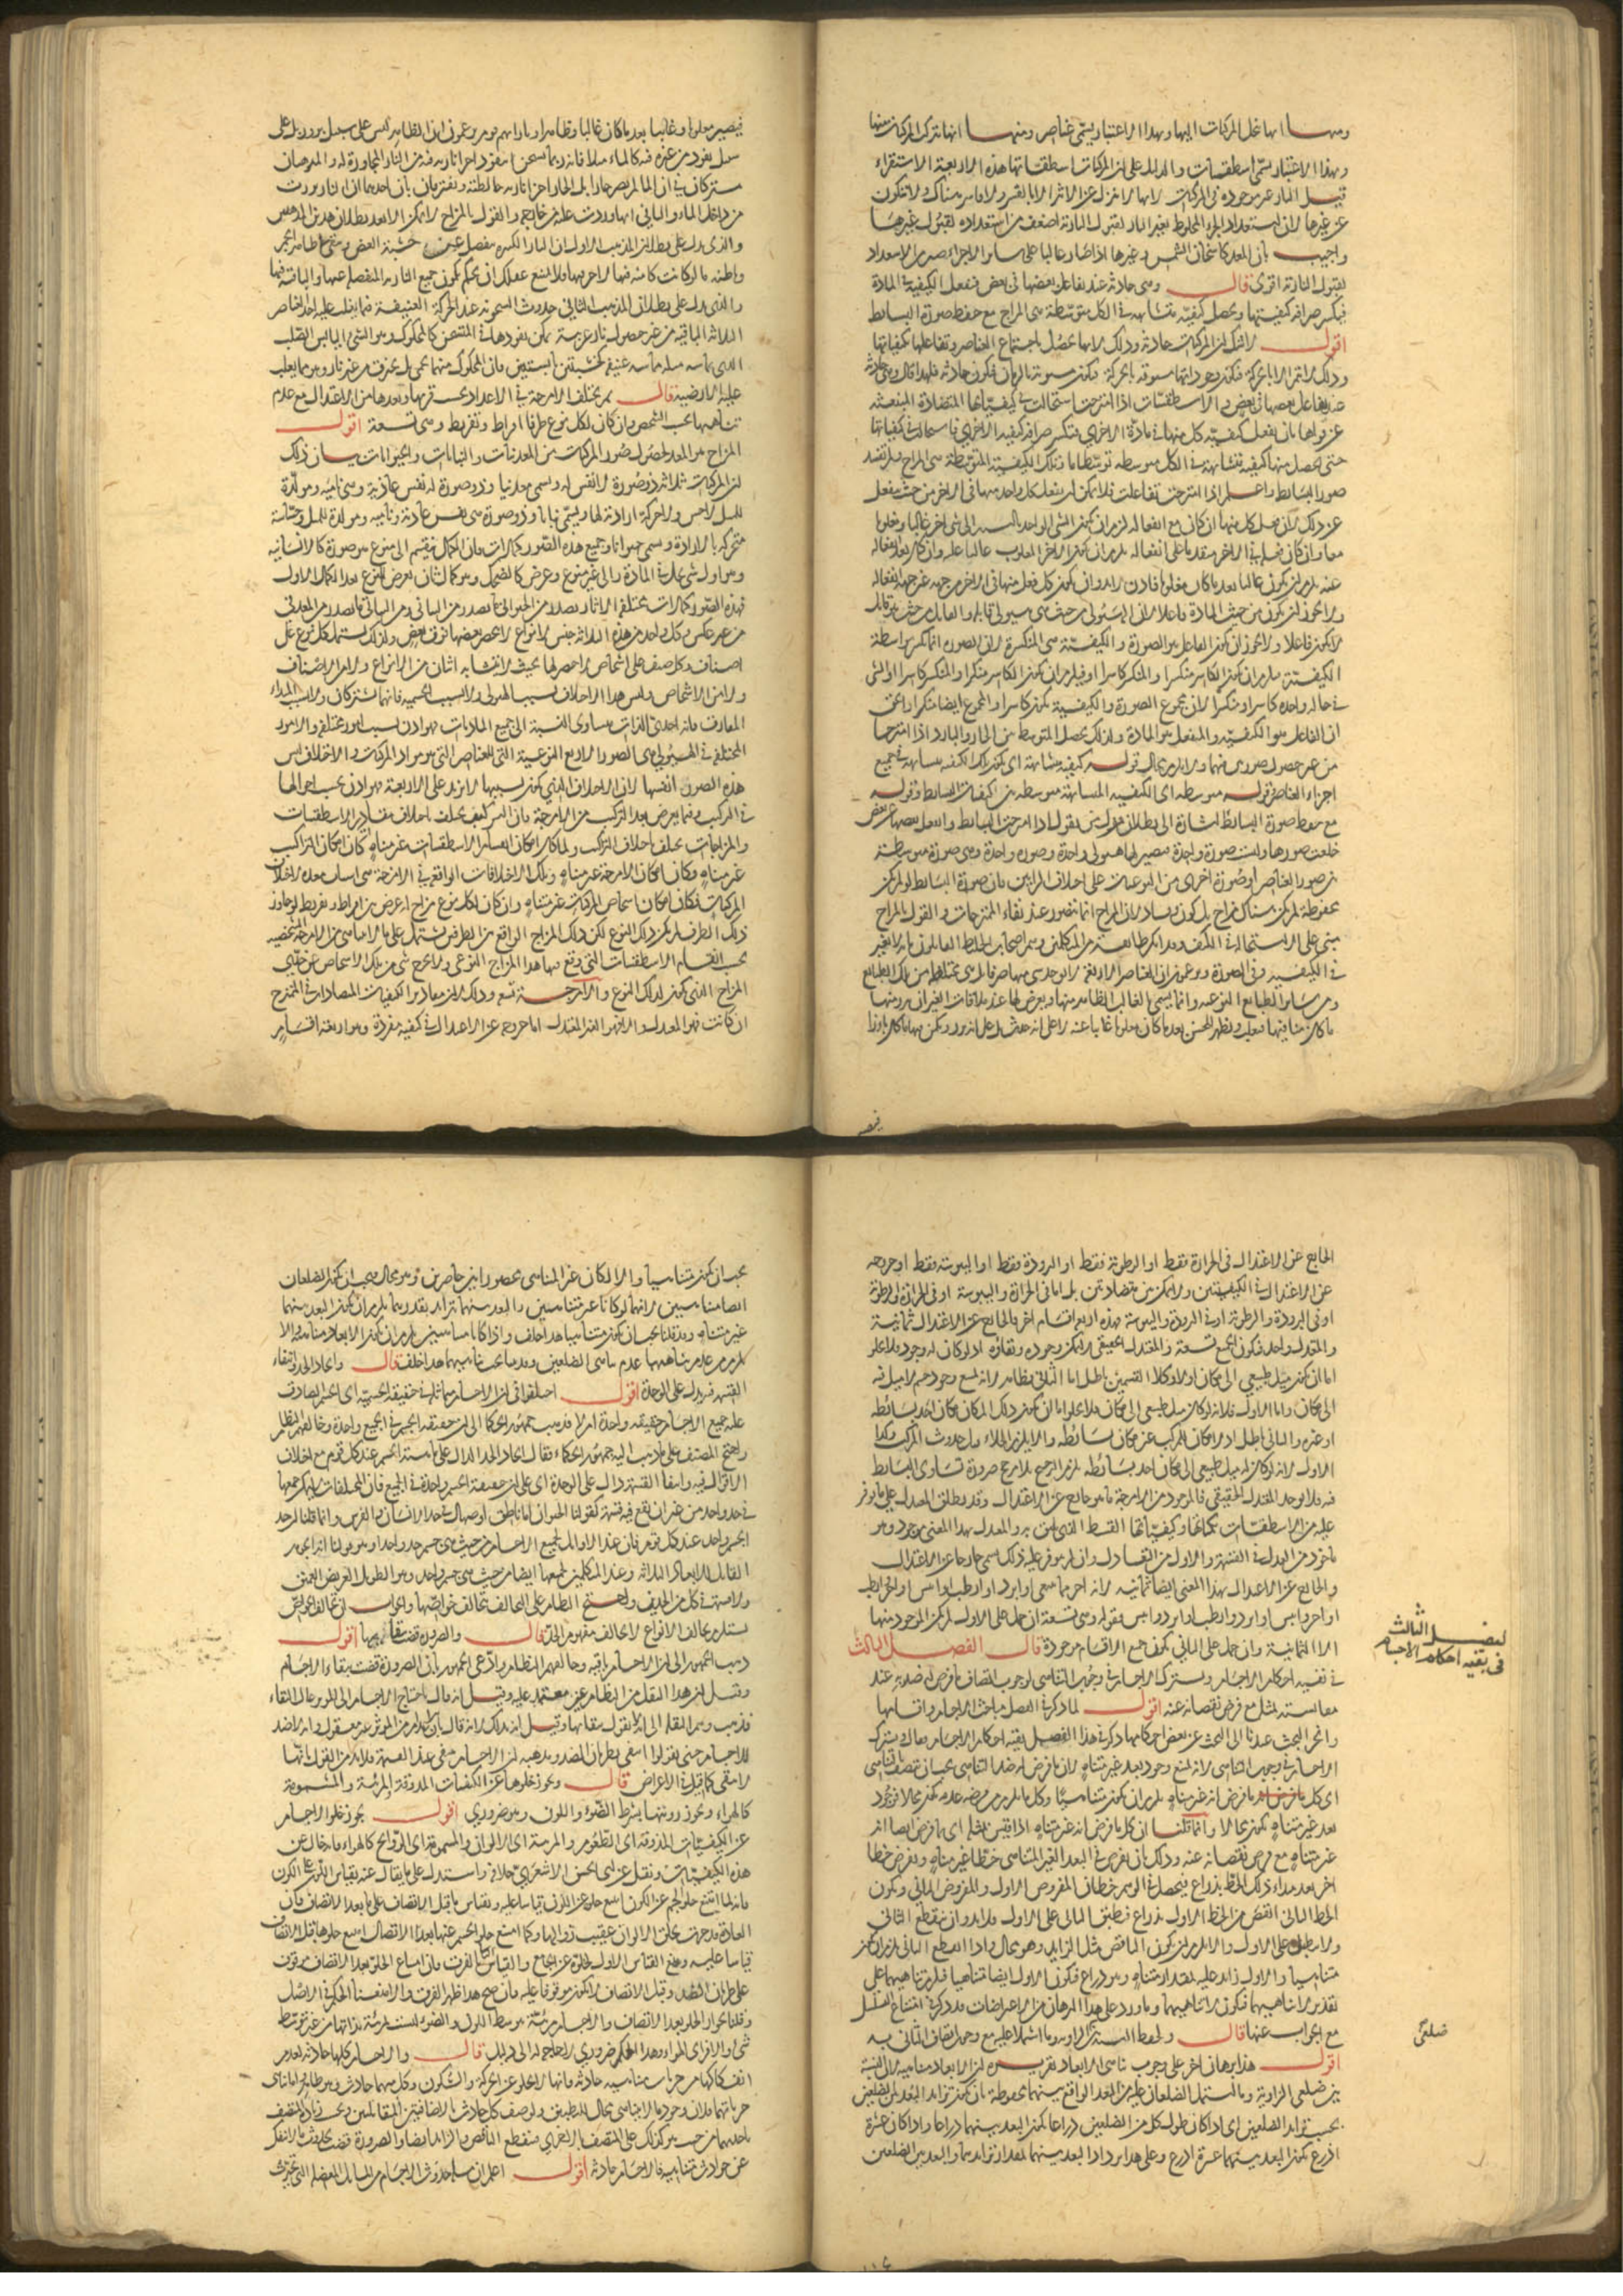 ومنها انها تنحل المركبات اليها وبهذا الاعتبار يسمى عناصر ومنها انها تتركب المركبات منها
وبهذا الاعتبار يسمى اسطقسات والدليل على ان المركبات اسطقساتها هذه الاربعة الاستقراء
قيل النار غير موجودة في المركبات لانها لا تنزل عن الاثير الا بالقسر ولا قاسر هناك ولا تتكون
عن غيرها لان استعداد الجزء المخلوط بغير النار لقبول النارية اضعف من استعداده لقبول غيرها
واجيب بان المعد كاسخان الشمس وغيرها اذا صار غالبا على سائر الاجزاء صير الاستعداد
لقبول النارية اقوى قال وهي حادثة عند تفاعل بعضها في بعض فتفعل الكيفية في المادة
فيكسر صرافة كيفيتها ويحصل كيفية متشابهة في الكل متوسطة هي المزاج مع حفظ صورة البسائط
اقول لا شك ان المركبات حادثة وذلك لانها تحصل باجتماع العناصر وتفاعلها بكيفياتها
وذلك لا يتم الا بالحركة فيكون وجوداتها مسبوقة بالحركة فيكون مسبوقة بالزمان فيكون حادثة فلهذا قال وهي حادثة
عند تفاعل بعضها في بعض والاسطقسات اذا امتزجت استحالت في كيفياتها المتضادة المنبعثة
عن قواها بان يفعل كيفية كل منها في مادة الاخرى فتكسر صرافة كيفية الاخرى فاستحالت في كيفياتها
حتى يحصل منها كيفية متشابهة في الكل متوسطة توسطا ما وتلك الكيفية المتوسطة هي المزاج ولم تفسد
صور البسائط واعلم اذا امتزجت تفاعلت فلا يمكن ان يفعل كل واحد منها في الاخر من حيث ينفعل
عن ذلك لان فعل كل منها ان كان مع انفعاله لزم ان يكون الشيء الواحد بالنسبة الى شيء اخر غالبا ومغلوبا
معا وان كان فعله في الاخر متقدما على انفعاله يلزم ان يكون الاخر المغلوب غالبا عليه وان كان بعد انفعاله
عنه يلزم ان يكون غالبا بعد ما كان مغلوبا فاذن لا بد وان يكون كل فعل منها في الاخر من جهة غير جهة انفعاله
ولا يجوز ان يكون من حيث المادة فاعلا لان الهيولى من حيث هي هيولى قابل والقابل من حيث هو قابل
لا يكون فاعلا ولا يجوز ان يكون الفاعل هو الصورة والكيفية هي المنكسرة لان الصورة انما تكسر بواسطة
الكيفية يلزم ان يكون الكاسر منكسرا والمنكسر كاسرا فيلزم ان يكون الكاسر منكسرا والمنكسر كاسرا او الشيء
في حالة واحدة كاسرا ومنكسرا لان مجموع الصورة والكيفية يكون كاسرا والمجموع ايضا منكسرا والحق
ان الفاعل هو الكيفية والمنفعل هو المادة ولذلك يحصل المتوسط من الحار والبارد اذا امتزجا
من غير حصول صورتين فيهما ولا يلزم محال قوله كيفية متشابهة اي يكون تلك الكيفية متشابهة في جميع
اجزاء العناصر قوله متوسطة اي الكيفية المتشابهة متوسطة بين كيفيات البسائط وقوله
مع حفظ صورة البسائط اشارة الى بطلان قول من يقول اذا امتزجت البسائط وانفعل بعضها عن بعض
خلعت صورها ولبست صورة واحدة فيصير لها هيولى واحدة وصورة واحدة وهي صورة متوسطة
بين صور العناصر او صورة اخرى من النوعيات على اختلاف الرأيين بان صورة البسائط لو لم يكن
محفوظة لم يكن هناك مزاج بل كون وفساد لان المزاج انما يتصور عند بقاء الممتزجات والقول بالمزاج
مبني على الاستحالة في الكيف وقد انكر طائفة من المتكلمين وهم اصحاب الخليط القائلون بانه لا تغير
في الكيفية وفي الصورة ويزعمون ان العناصر الاربعة لا يوجد شيء منها صرفا بل هي مختلطة من تلك الطبائع
ومن سائر الطبائع النوعية وانما يسمى بالغالب الظاهر منها ويعرض لها عند ملاقات الغير ان يبرز منها
ما كان كامنا فيها فيغلب ويظهر للحس بعد ما كان مغلوبا غائبا عنه لا على انه حدث بل على انه برز ويكمن فيها ما كان بارزا
فيصير
فيصير مغلوبا وغائبا بعد ما كان غالبا وظاهرا وبازائهم قوم يزعمون ان الظاهر ليس على سبيل بروز بل على
سبيل نفوذ من غيره فيه كالماء مثلا فانه انما يتسخن بنفوذ اجزاء نارية فيه من النار المجاورة له والمذهبان
مشتركان في ان الماء لم يصر حارا بل الحار اجزاء نارية خالطته ويفترقان بان احدهما ان النار برزت
من داخل الماء والثاني انها وردت عليه من خارجه والقول بالمزاج لا يمكن الا بعد بطلان هذين المذهبين
والذي يدل على بطلان المذهب الاول ان النار الكثيرة تنفصل عن خشبة الغضى ويبقى في ظاهر الجمر
وباطنه ما لو كانت كامنة فيها لاحرقتها ولا يسع عقلك ان يحكم بكون جميع النارية المنفصلة عنها والباقية فيها
والذي يدل على بطلان المذهب الثاني حدوث السخونة عند الحركة العنيفة فيما يغلب عليه احد العناصر
الثلاثة الباقية من غير حصول نار غريبة يمكن نفوذها في المتسخن كالمحكوك وهو الشيء اليابس الصلب
الذي يماسه مثله مماسة عنيفة كخشبتين يابستين فان المحكوك منهما يحمى بل يحترق من غير نار وهو مما يغلب
عليه الارضية قال ثم تختلف الامزجة في الاعداد بحسب قربها وبعدها من الاعتدال مع عدم
تناهيها بحسب الشخص وان كان لكل نوع طرفا افراط وتفريط وهي تسعة اقول
المزاج هو المعد لحصول صور المركبات من المعدنيات والنباتات والحيوانات بيان ذلك
ان المركبات ثلاثة ذو صورة لا نفس له ويسمى معدنيا وذو صورة له نفس غاذية وهي نامية ومولدة
للمثل لا حس ولا حركة ارادية لها ويسمى نباتا وذو صورة هي نفس غاذية ونامية ومولدة للمثل وحساسة
متحركة بالارادة ويسمى حيوانا وجميع هذه الصور كمالات فان الكمال ينقسم الى منوع هو صورة كالانسانية
وهو اول شيء يحل في المادة والى غير منوع وعرض كالضحك وهو كمال ثان يعرض للنوع بعد الكمال الاول
فهذه الصور كمالات مختلفة الاثار يصدر من الحيواني ما يصدر من النباتي ومن النباتي ما يصدر من المعدني
من غير عكس وكل واحد من هذه الثلاثة جنس لانواع لا يحصر بعضها فوق بعض ولذلك يشتمل كل نوع على
اصناف وكل صنف على اشخاص لا حصر لها بحيث لا يتشابه اثنان من الانواع ولا من الاصناف
ولا من الاشخاص وليس هذا الاختلاف بسبب الهيولى ولا بسبب الجسمية فانهما مشتركان ولا بسبب المبداء
المفارق فانه احدي الذات متساوي النسبة الى جميع الماديات فهو اذن بسبب امور مختلفة والامور
المختلفة في الهيولى هي الصور الاربع النوعية التي للعناصر التي هي مواد المركبات والاختلاف ليس
هذه الصور انفسها لان الاختلاف الذي يكون بسببها لا يزيد على الاربعة فهو اذن بحسب احوالها
في التركيب وفيما يعرض بعد التركيب من الامزجة فان التركيب يختلف باختلاف مقادير الاسطقسات
والمزاجات يختلف باختلاف التركيب ولما كان امكان انقسام الاسطقسات غير متناه كان امكان التراكيب
غير متناه وكان امكان الامزجة غير متناه وتلك الاختلافات الواقعة في الامزجة هي اسباب معدة لاختلاف
المركبات فكان امكان اشخاص المركبات غير متناه وان كان لكل نوع مزاج له عرض بين افراط وتفريط لو جاوز
ذلك الطرف لم يكن ذلك النوع لكن ذلك المزاج الواقع بين الطرفين يشتمل على ما لا يتناهى من الامزجة الشخصية
بحسب انقسام الاسطقسات التي وقع بينها هذا المزاج النوعي ولا يخرج شيء من تلك الاشخاص عن حدي
المزاج الذي يكون لذلك النوع والامزجة تسعة وذلك لان مقادير الكيفيات المتضادات في الممتزج
ان كانت فهو المعتدل والا فهو الغير المعتدل اما خروجه عن الاعتدال في كيفية مفردة وهو اربعة اقسام
الخارج عن الاعتدال في الحرارة فقط او الرطوبة فقط او البرودة فقط او اليبوسة فقط او خروجه
عن الاعتدال في الكيفيتين ولا يمكن من متضادتين بل اما في الحرارة واليبوسة او في الحرارة والرطوبة
او في البرودة والرطوبة او في البرودة واليبوسة وهذه اربع اقسام اخر فالخارج عن الاعتدال ثمانية
والمعتدل واحد فيكون الجميع تسعة والمعتدل الحقيقي لا يمكن وجوده وبقاؤه اذ لو كان له وجود فلا يخلو
اما ان يكون له ميل طبيعي الى مكان اولا وكلا القسمين باطل اما الثاني فظاهر لانه يمتنع وجود جسم لا ميل له
الى مكان واما الاول فلانه لو كان له ميل طبيعي الى مكان فلا يخلو اما ان يكون ذلك المكان مكان احد بسائطه
او غيره والثاني باطل اذ لا مكان للمركب غير مكان بسائطه والا يلزم الخلاء قبل حدوث المركب وكذا
الاول لانه لو كان له ميل طبيعي الى مكان احد بسائطه يلزم الترجيح بلا مرجح ضرورة تساوي البسائط
فيه فلا يوجد المعتدل الحقيقي فالموجود من الامزجة ما هو خارج عن الاعتدال وقد يطلق المعتدل على ما توفر
عليه من الاسطقسات بكمياتها وكيفياتها القسط الذي ينبغي له والمعتدل بهذا المعنى موجود وهو
ماخوذ من العدل في القسمة والاول من التعادل وان لم يتوفر عليه ذلك يسمى خارجا عن الاعتدال
والخارج عن الاعتدال بهذا المعنى ايضا ثمانية لانه احر مما ينبغي او ابرد او ارطب او ايبس او احر وارطب
او احر وايبس او ابرد وارطب او ابرد وايبس فقوله وهي تسعة ان حمل على الاول لم يكن الموجود منها
الا الثمانية وان حمل على الثاني يكون جميع الاقسام موجودة قال الفصل الثالث
في بقية احكام الاجسام ويشترك الاجسام في وجوب التناهي لوجوب اتصاف ما فرض له ضده به عند
مقايسته بمثله مع فرض نقصانه عنه اقول لما ذكر في الفصل مباحث الاجسام واقسامها
وانجر البحث عنها الى البحث عن بعض احكامها ذكر في هذا الفصل بقية احكام الاجسام فقال ويشترك
الاجسام في وجوب التناهي لانه يمتنع وجود بعد غير متناه لان ما فرض له ضد التناهي يجب ان يتصف بالتناهي
اي كل ما فرض انه غير متناه يلزم ان يكون متناهيا وكل ما يلزم من فرضه عدمه يكون محالا فوجود
بعد غير متناه يكون محالا وانما قلنا ان كل ما فرض انه غير متناه اذا قيس بمثله اي بما فرض ايضا انه
غير متناه مع فرض نقصانه عنه وذلك بان نفرض في البعد الغير المتناهي خطا غير متناه ونفرض خطا
اخر بعد مبداء ذلك الخط بذراع فيحصل في الوهم خطان المفروض الاول والمفروض الثاني ويكون
الخط الثاني انقص من الخط الاول بذراع فنطبق الثاني على الاول فلا بد وان ينقطع الثاني
ولا ينطبق على الاول والا يلزم ان يكون الناقص مثل الزايد وهو محال واذا انقطع الثاني يلزم ان يكون
متناهيا والاول زايد عليه بمقدار متناه وهو ذراع فيكون الاول ايضا متناهيا فيلزم تناهيهما على
تقدير لا تناهيهما فيكون لا تناهيهما وما ورد على هذا البرهان من الاعتراضات قد ذكر في امتناع التسلسل
مع الجواب عنها قال ولحفظ النسبة بين ضلعي الزاوية وما اشتملا عليه مع وجوب اتصاف الثاني به
اقول هذا برهان اخر على وجوب تناهي الابعاد تقريره ان الابعاد متناهية لان النسبة
بين ضلعي الزاوية وما اشتمل الضلعان عليه من البعد الواقع بينهما محفوظة بان يكون تزايد البعد بين الضلعين
بحسب تزايد الضلعين اي اذا كان طول كل من الضلعين ذراعا يكون البعد بينهما ذراعا واذا كان عشرة
اذرع يكون البعد بينهما عشرة اذرع وعلى هذا يزداد البعد بينهما بمقدار تزايدهما والبعد بين الضلعين
الفصل الثالث
في بقية احكام الاجسام
ضلعي
يجب ان يكون متناهيا والا لكان غير المتناهي محصورا بين حاصرين وهو محال فيجب ان يكون الضلعان
ايضا متناهيين لانهما لو كانا غير متناهيين والبعد بينهما تزايد بقدرهما يلزم ان يكون البعد بينهما
غير متناه وقد قلنا يجب ان يكون متناهيا هذا خلف واذا كانا متناهيين يلزم ان يكون الابعاد متناهية والا
يلزم من عدم تناهيها عدم تناهي الضلعين وقد بينا وجوب تناهيهما هذا خلف قال واتحاد الحد وانتفاء
القسمة فيه يدل على الوحدة اقول اختلفوا في ان الاجسام متماثلة في حقيقة الجسمية اي الجسم الصادق
على جميع الاجسام حقيقة واحدة ام لا فذهب جمهور الحكما الى ان حقيقة الجسم في الجميع واحدة وخالفهم النظام
واحتج المصنف على ما ذهب اليه جمهور الحكماء فقال اتحاد الحد الدال على ماهية الجسم عند كل قوم مع اختلاف
الاقوال فيه وانتفاء القسمة دال على الوحدة اي على ان حقيقة الجسم واحدة في الجميع فان المختلفات لا يمكن جمعها
في حد واحد من غير ان يقع فيه قسمة كقولنا الحيوان اما ناطق او صهال في حد الانسان والفرس وانما قلنا ان حد
الجسم واحد عند كل قوم فان عند الاوائل لجميع الاجسام من حيث هي جسم حد واحد وهو قولنا انه الجوهر
القابل للابعاد الثلاثة وعند المتكلمين لجميعها ايضا من حيث هي جسم حد واحد وهو الطويل العريض العميق
ولا قسمة في كل من الحدين واحتج النظام على التخالف بتخالف خواصها والجواب ان تخالف الخواص
يستلزم تخالف الانواع لا تخالف مفهوم الحد قال والضرورة قضت ببقائها اقول
ذهب الجمهور الى ان الاجسام باقية وخالفهم النظام وادعى الجمهور بان الضرورة قضت ببقاء الاجسام
وقيل ان هذا النقل من النظام غير معتمد عليه وقيل انه قال باحتياج الاجسام الى المؤثر حال البقاء
فذهب وهم النقلة الى انه لا يقول ببقائها وقيل انه قال ذلك لانه قال بان الاعدام من المؤثر غير معقول وانه لا ضد
للاجسام حتى يقولوا انتفى بطريان الضد ومذهبه ان الاجسام تنتفي عند القيمة فلا بد من القول بانها
لا تبقى كما قيل في الاعراض قال ويجوز خلوها عن الكيفيات المذوقة والمرئية والمشمومة
كالهواء ويجوز رؤيتها بشرط الضوء واللون وهو ضروري اقول يجوز خلو الاجسام
عن الكيفيات المذوقة اي الطعوم والمرئية اي الالوان والمشمومة اي الروائح كالهواء فانه خال عن
هذه الكيفيات ونقل عن ابي الحسن الاشعري خلافه واستدل على ما يقال عنه بقياس اللون على الكون
فانه لما امتنع خلو الجسم عن الكون امتنع خلوه عن اللون قياسا عليه وبقياس ما قبل الاتصاف على ما بعد الاتصاف فان
العادة قد جرت بخلق الالوان عقيب زوالها وكما امتنع خلو الجسم عنها بعد الاتصاف امتنع خلوها قبل الاتصاف
قياسا عليه ومنع القياس الاول لخلوه عن الجامع والقياس الثاني بالفرق فان امتناع الخلو بعد الاتصاف موقوف
على طريان الضد وقبل الاتصاف لا يكون موقوفا عليه فان صح هذا ظهر الفرق والا منعنا الحكم في الاصل
وقلنا بجواز الخلو بعد الاتصاف والاجسام مرئية بتوسط اللون والضوء وليست مرئية بذاتها من غير توسط
شيء والا لرئي الهواء وهذا الحكم ضروري لا حاجة له الى دليل قال والاجسام كلها حادثة لعدم
انفكاكها من جزئيات متناهية حادثة فانها لا تخلو عن الحركة والسكون وكل منهما حادث وهو ظاهر واما تناهي
جزئياتهما فلان وجود ما لا يتناهى محال للتطبيق ولوصف كل حادث بالاضافتين المتقابلتين ويجب زيادة المتصف
باحديهما من حيث هو كذلك على المتصف بالاخرى فينقطع الناقص والزايد ايضا والضرورة قضت بحدوث ما لا ينفك
عن حوادث متناهية فالاجسام حادثة اقول اعلم ان مسئلة حدوث الاجسام من المسائل المعضلة التي تحيرت